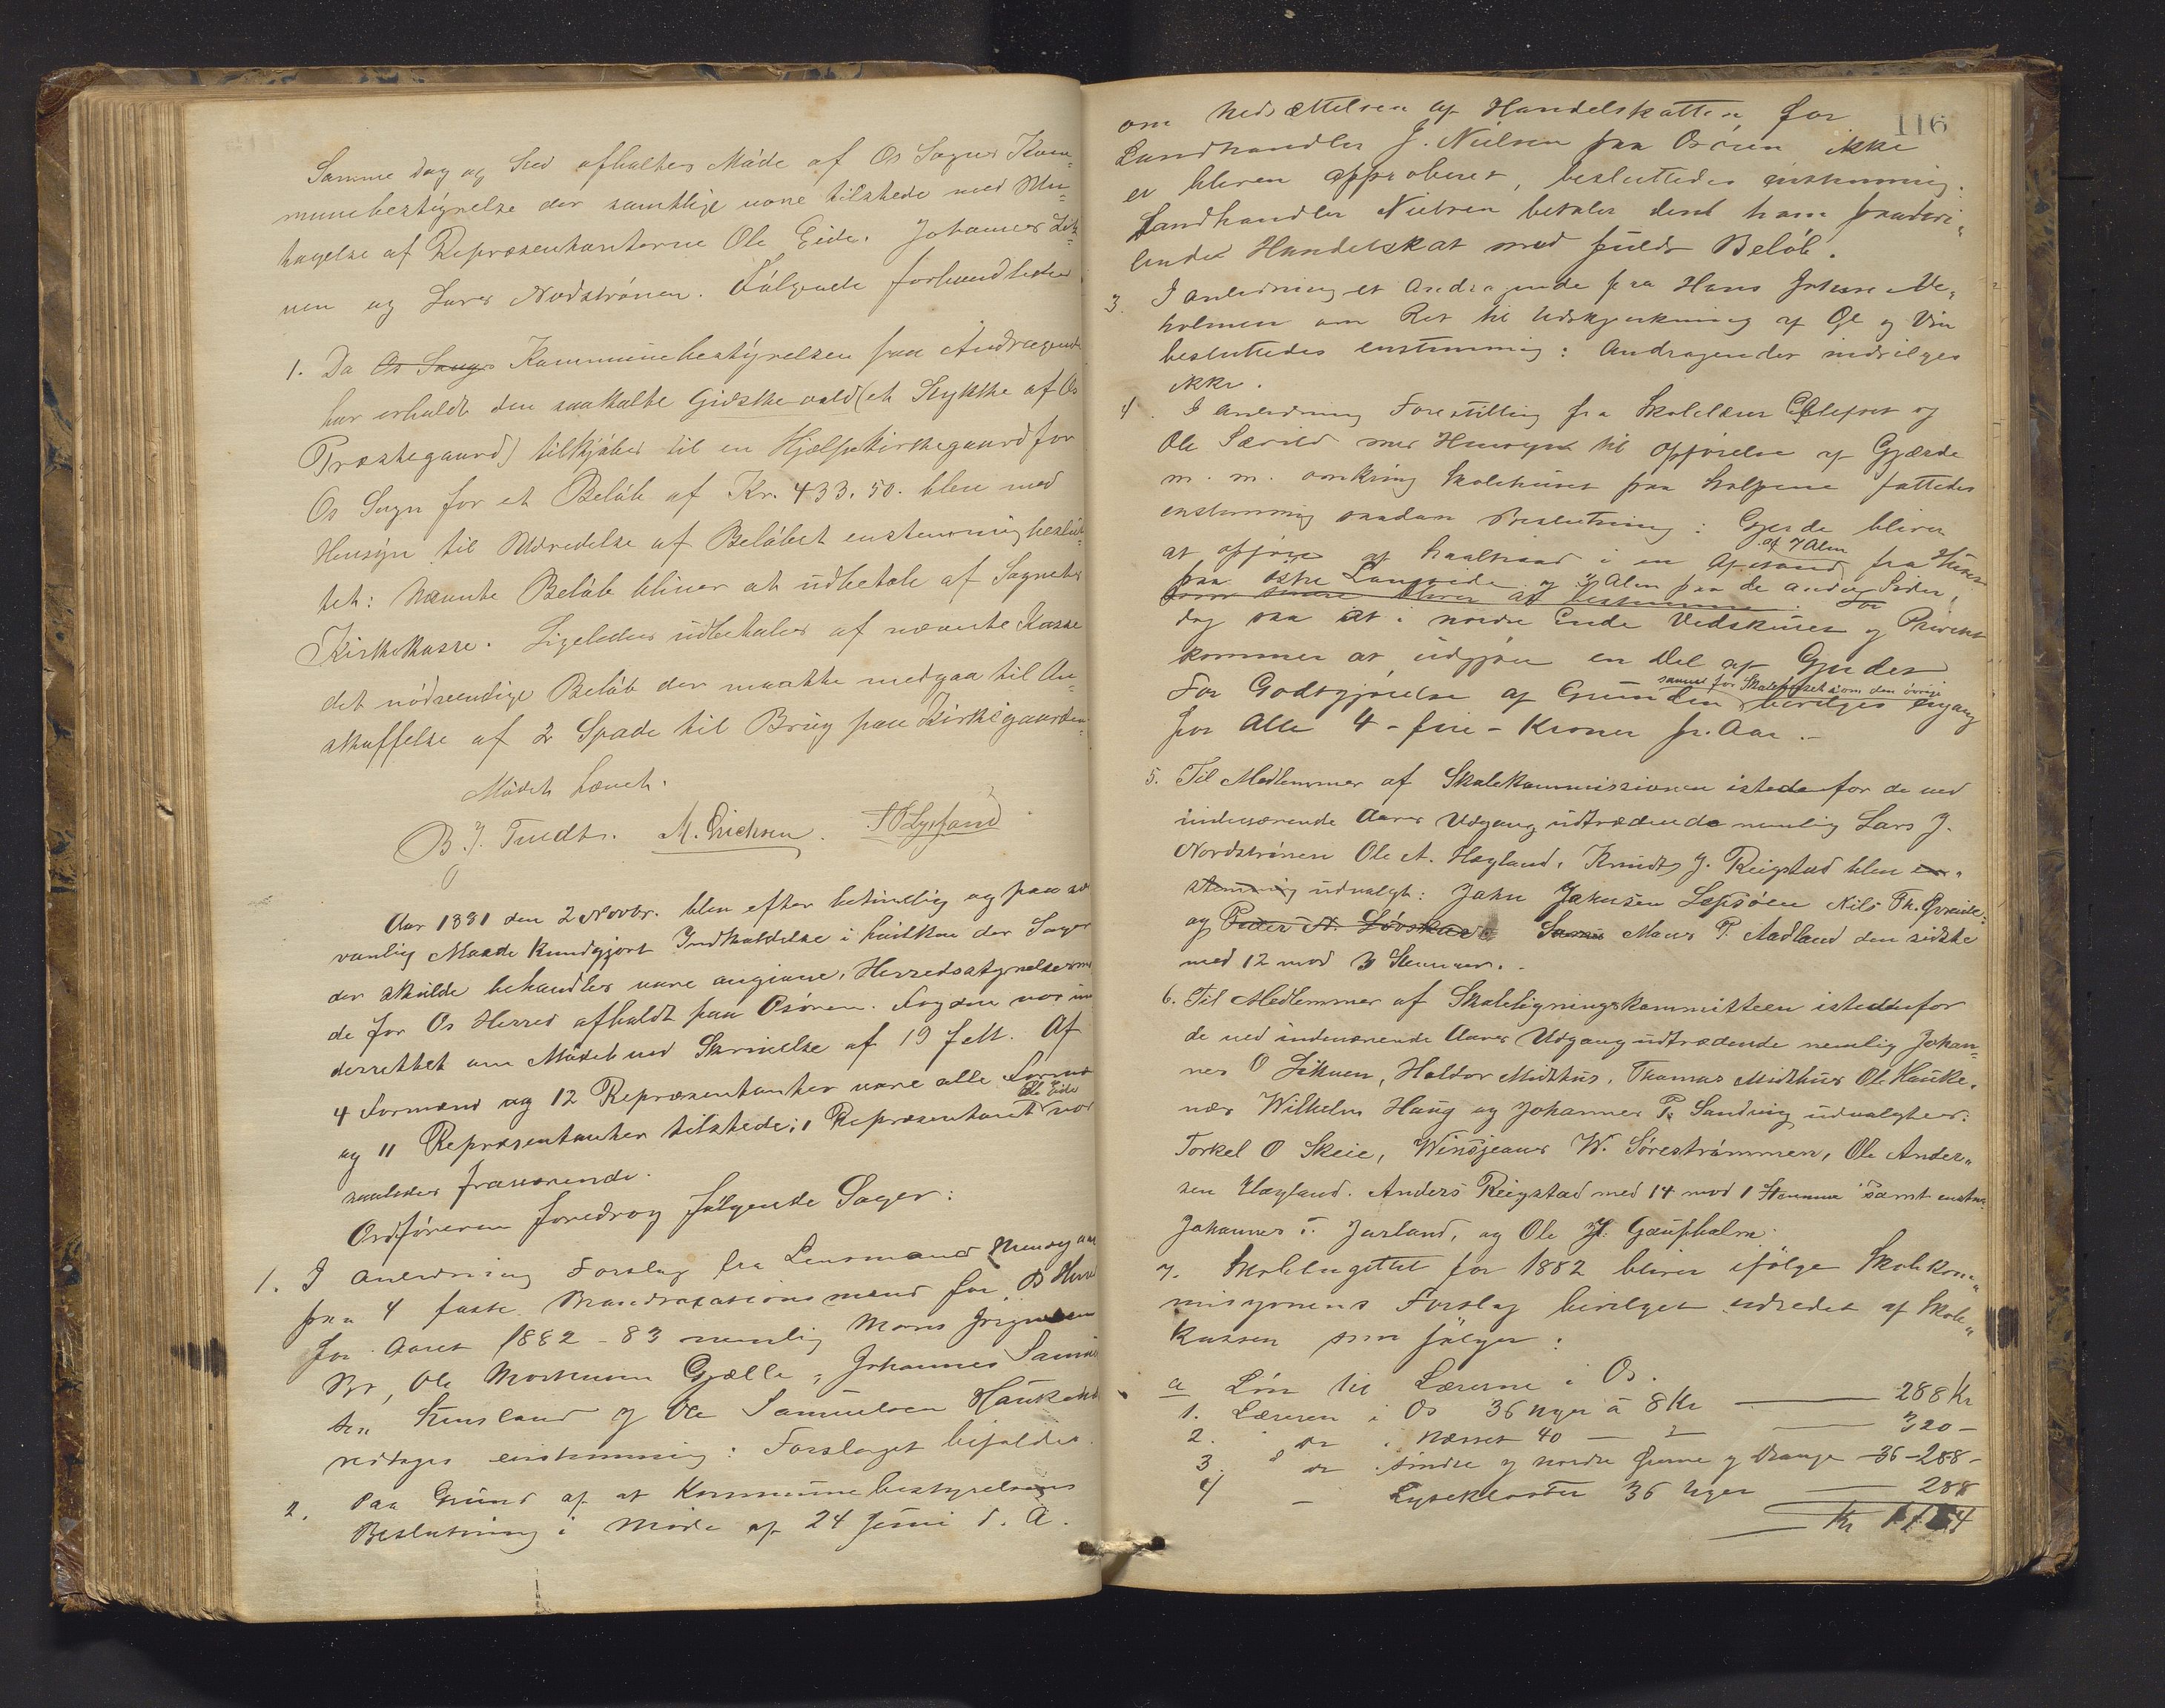 Samme Dag og Sted afholdtes Møde af Os Sogns Kom-
munebestyrelse der samtlige vare tilstede med Und-
tagelse af Repræsentanterne Ole Eide, Johannes Lek-
nen og Lars Nordstrønen. Følgende forhandledes
1. Da Os Sangs Kommunebestyrelsen paa Andragende
har erholdt den saakalte Gidskevold (et Stykke af Os
Præstegaard) tilkjøbes til en Hjælpekirkegaard for
Os Sogn for et Beløb af Kr. 433,50. blev med
Hensyn til Udredelse af Beløbet enstemmig beslut-
tet: Nævnte Beløb bliver at udbetale af Sognets
Kirkekasse. Ligeledes udbetales af nævnte Kasse
det nødvendige Beløb der maatte medgaa til An-
skaffelse af 2 Spade til Brug paa Kirkegaarden.
Mødet hævet.
B. J. Tvedt. M. Erichsen. Lysfand
Aar 1881 den 2 Novbr. blev efter betimelig og paa sed-
vanlig Maade kundgjort Indkaldelse i hvilken de Sager
der skulde behandles vare angivne, Herredsstyrelsesmø
de for Os Herred afholdt paa Osøren. Fogden var un
derrettet om Mødet ved Skrivelse af 19 f. Mt. Af
4 Formænd og 12 Repræsentanter vare alle Formæ
og 11 Repræsentanter tilstede; 1 Repræsentant Ole Eide var
saaledes fraværende.
Ordføreren foredrog følgende Sager:
1. I Anledning Forslag fra Lensmand
paa 4 faste Brandtaxationsmænd for Os Herred
for Aaret 1882-83 nemlig Mons
Ole Mortensen Gjælle, Johannes
Steinsland og Ole Samuelsen
vedtoges enstemmig: Forslaget bifaldes.
2. Paa Grund af at Kommunebestyrelsens
Beslutning i Møde af 24 Juni d. A.
116
om Nedsættelsen af Handelskatten for
Landhandler J. Nielsen paa Osøren ikke
er bleven approberet, besluttedes enstemmig:
Landhandler Nielsen betaler dend ham paahvi-
lende Handelskat med fuldt Beløb.
3. I Anledning et Andragende fra Hans Johnsen
holmen om Ret til Udskjænkning af Øl og Vin
besluttedes enstemmig: Andragendet indvilges
ikke.
4. I Anledning Forestilling fra Skolelærer og
Ole Særvold med Hensyn til Opførelse af Gjærde
m. m. omkring Skolehuset paa fattedes
enstemmig saadan Beslutning: Gjerde bliver
at opføre af i en Afstand af 7 Alen fra Huset
paa østre Langside og 3 Alen paa de andre Sider,
dog saa at i nordre Ende Vedskuret og Privetet
kommer at udgjøre en Del af Gjerdet
For Godtgjørelse af Grunden samt for Skolehuset som den øvrige bevilges engang
for Alle 4 - fire - Kroner pr. Aar.-
5. Til Medlemmer af Skolekommissionen istedenfor de ved
indeværende Aars Udgang udtrædende nemlig Lars J.
Nordstrønen Ole A. Hegland, Knudt J. Reigstad blev en-
stemmig udvalgt: John Johnsen Lepsøen Nils Th. Qveile.
og Peder N. Løvskar Mons P. Aadland den sidste
med 12 mod 3 Stemmer.
6. Til Medlemmer af Skoleligningskommitteen istedenfor
de ved indeværende Aars Udgang udtrædende nemlig Johan-
nes O Leknen, Haldor Midthus, Thomas Midthus Ole Hauke-
nær Wilhelm Haug og Johannes P. Sandvig udvalgtes:
Torkel O Skeie, Winsjeans W. Sørestrømmen, Ole Ander-
sen Hegland. Anders Reigstad med 14 mod 1 Stemme samt enstem
Johannes T. Jarland, og Ole H. Gaupholm.
7. Skolebugettet for 1882 bliver ifølge Skolekom-
misjonens Forslag bevilget udredet af Skole-
kassen som følger:
a Løn til Lærerne i Os.
1. Læreren i Os 36 Uger à 8 Kr — 288 Kr
2. " do i Næsset 40 — " — 320 -
3. " do i søndre og nordre Øerne og Drange - 36 - 288 -
4 — Lysekloster 36 Uger — 288
Kr 1184